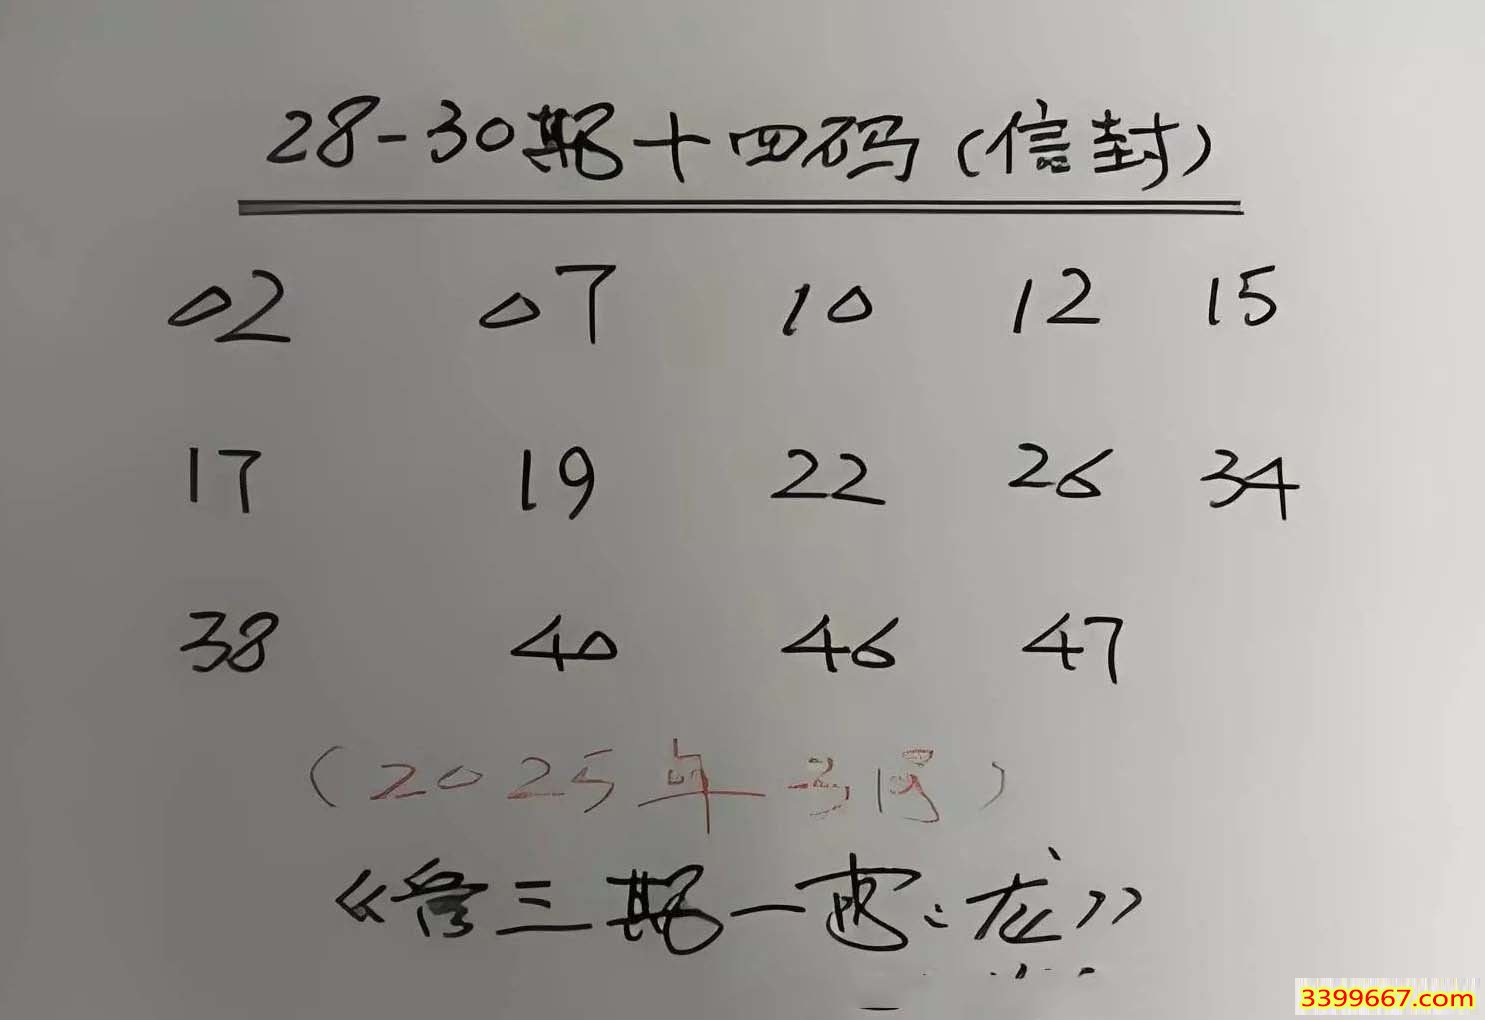 28-30期十四码(信封)
02 07 10 12 15
17 19 22 26 34
38 40 46 47
(2025年
三期一肖:龙》
3399667.com